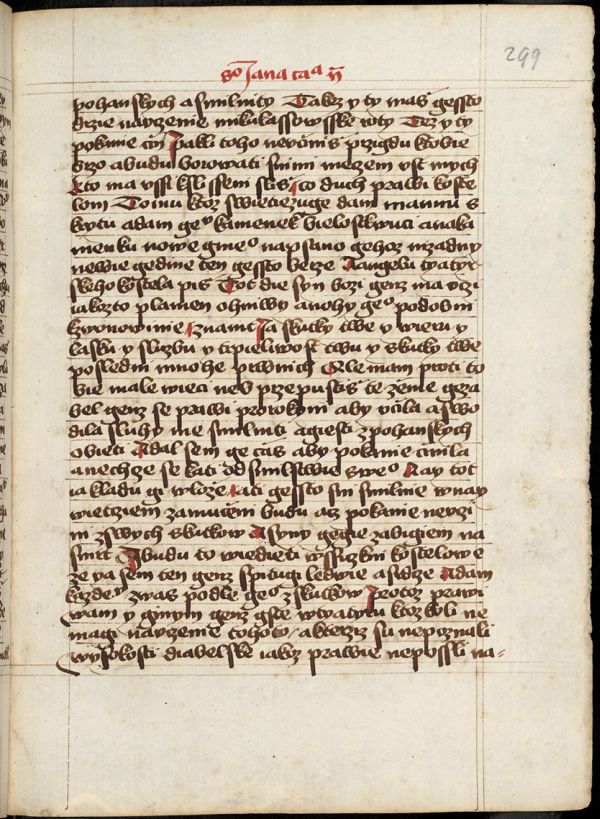 299
pohanskych a smilnity Takez y ty mas gessto
drzie nauczenie mikulassowsske roty Tez y ty
pokanie czin Pakli toho nevczinis przigdu k tobie
brzo a budu boiowati s nimi meczem vst mych
Kto ma vssi k slisseni slis co duch prawi koste
lom Tomu ktoz swieteziuge dam mannu s
krytu a dam geo kamenek bielostkwuci a na ka
menku nowe gmeo napsano gehoz nizadny
newie gedine ten gessto berze A angelu tyatyr
skeho kostela pis Tot die syn bozi genz ma oczi
iakozto plamen ohniwy a nohy geo podobni
k zwonowinie Znamt Ja skutky twe y wieru y
lasku y sluzbu y trpeliwost twu y skutky twe
posledni mnohe prwnich Ale mam proti to
bie male wieci neb przepustis te zenie geza
bel genz se prawi prorokyni aby vczila a swo
dila sluhy me smilniti a giesti z pohanskych
obieti A dal sem ge czas aby pokanie czinila
a nechcze se kati od smilstwie sweo Nay tot
ia kladu gi w loze A ti gessto sni smilnie w nay
wietziem zamuczeni budu acz pokanie nevczi
ni z swych skutkow A syny gegie zabigiem na
smrt A budu to wiedieti wssiczkni kostelowe
ze ya sem ten genz spitugi ledwie a srdze A dam
kazdeo z was podle geo z skutkow Protoz prawi
wam y ginym genz gste w tyatyru ktoz koli ne
magi nauczenie tohoto a kterziz su nepoznali
wysokosti diabelske iakoz prawie neposli na-